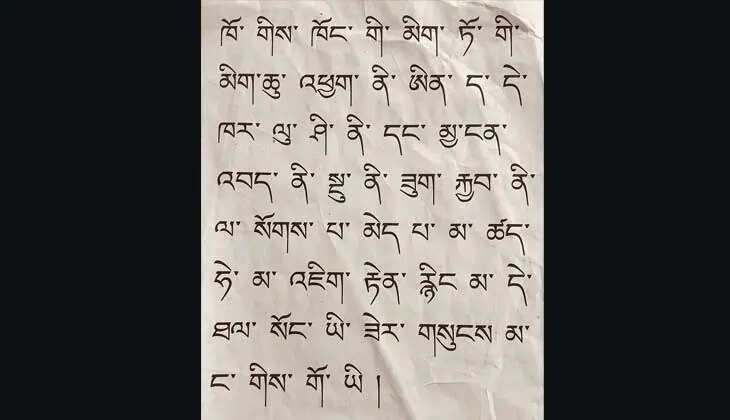 ཁོ་ གིས་ ཁོང་ གི་ མིག་ ཏོ་ གི་
མིག་ཆུ་ འཕྱག་ ནི་ ཨིན་ ད་ དེ་
ཁར་ ལུ་ ཤི་ ནི་ དང་ མྱ་ངན་
འབད་ ནི་ སྡུ་ ནི་ ཟུག་ རྐྱབ་ ནི་
ལ་ སོགས་ པ་ མེད་ པ་ མ་ ཚད་
ཧེ་ མ་ འཇིག་ རྟེན་ རྙིང་ མ་ དེ་
ཐལ་ སོང་ ཡི་ ཟེར་ གསུངས་ མ་
ང་ གིས་ གོ་ ཡི །